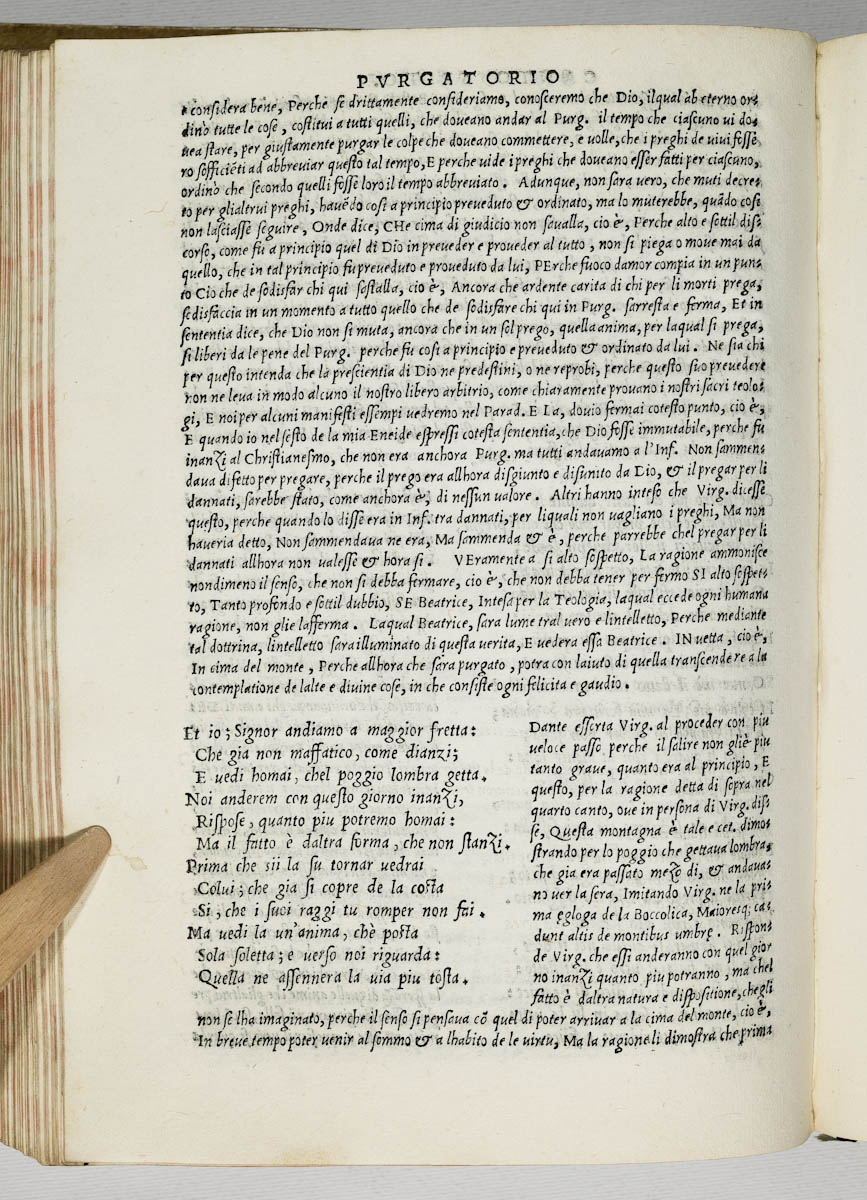 PVRGATORIO
considera bene, Perche se drittamente consideriamo, conosceremo che Dio, ilqual ab eterno or⸗
dinò tutte le cose, costitui a tutti quelli, che doueano andar al Purg. il tempo che ciascuno ui do⸗
uea stare, per giustamente purgar le colpe che doueano commettere, e uolle, che i preghi de uiui fosse⸗
ro sofficiẽti ad abbreuiar questo tal tempo, E perche uide i preghi che doueano esser fatti per ciascuno,
ordinò che secondo quelli fosse loro il tempo abbreuiato. Adunque, non sara uero, che muti decre⸗
to per glialtrui preghi, hauẽdo cosi a principio preueduto & ordinato, ma lo muterebbe, quãdo cosi
non lasciasse seguire, Onde dice, CHe cima di giudicio non s'aualla, cio è, Perche alto e sottil dis⸗
corso, come fu a principio quel di Dio in preueder e proueder al tutto, non si piega o moue mai da
quello, che in tal principio fu preueduto e proueduto da lui, PErche fuoco damor compia in un pun⸗
to Cio che de sodisfar chi qui sestalla, cio è, Ancora che ardente carita di chi per li morti prega,
sodisfaccia in un momento a tutto quello che de sodisfare chi qui in Purg. sarresta e ferma, Et in
sententia dice, che Dio non si muta, ancora che in un sol prego, quella anima, per laqual si prega,
si liberi da le pene del Purg. perche fu cosi a principio e preueduto & ordinato da lui. Ne sia chi
per questo intenda che la prescientia di Dio ne predestini, o ne reprobi, perche questo suo preuedere
non ne leua in modo alcuno il nostro libero arbitrio, come chiaramente prouano i nostri sacri teolo⸗
gi, E noi per alcuni manifesti essempi uedremo nel Parad. E La, douio fermai cotesto punto, cio è,
E quando io nel sesto de la mia Eneide espressi cotesta sententia, che Dio fosse immutabile, perche fu
inanzi al Christianesmo, che non era anchora Purg. ma tutti andauamo a l'Inf. Non sammen⸗
daua difetto per pregare, perche il prego era allhora disgiunto e disunito da Dio, & il pregar per li
dannati, sarebbe stato, come anchora è, di nessun ualore. Altri hanno inteso che Virg. dicesse
questo, perche quando lo disse era in Inf. tra dannati, per liquali non uagliano i preghi, Ma non
haueria detto, Non sammendaua ne era, Ma sammenda & è, perche parrebbe chel pregar per li
dannati allhora non ualesse & hora si. VEramente a si alto sospetto, La ragione ammonisce
nondimeno il senso, che non si debba fermare, cio è, che non debba tener per fermo SI alto sospet⸗
to, Tanto profondo e sottil dubbio, SE Beatrice, Intesa per la Teologia, laqual eccede ogni humana
ragione, non glie lafferma. Laqual Beatrice, sara lume tral uero e lintelletto, Perche mediante
tal dottrina, lintelletto sara illuminato di questa uerita, E uedera essa Beatrice. IN uetta, cio è,
In cima del monte, Perche allhora che sara purgato, potra con laiuto di quella transcendere a la
contemplatione de lalte e diuine cose, in che consiste ogni felicita e gaudio.
Et io; Signor andiamo a maggior fretta:
Che gia non maffatico, come dianzi;
E uedi homai, chel poggio lombra getta.
Noi anderem con questo giorno inanzi,
Rispose, quanto piu potremo homai:
Ma il fatto è daltra forma, che non stanzi.
Prima che sii la su tornar uedrai
Colui; che gia si copre de la costa
Si, che i suoi raggi tu romper non fai.
Ma uedi la un'anima, chè posta
Sola soletta; e uerso noi riguarda:
Quella ne assennera la uia piu tosta.
Dante essorta Virg. al proceder con piu
ueloce passo perche il salire non gliè piu
tanto graue, quanto era al principio, E
questo, per la ragione detta di sopra nel
quarto canto, oue in persona di Virg. dis⸗
se, Questa montagna è tale e cet. dimo⸗
strando per lo poggio che gettaua lombra,
che gia era passato mezo di, & andaua⸗
no uer la sera, Imitando Virg. ne la pri⸗
ma egloga de la Boccolica, Maioresq; ca⸗
dunt altis de montibus umbrę. Rispon⸗
de Virg. che essi anderanno con quel gior
no inanzi quanto piu potranno, ma chel
fatto è daltra natura e dispositione, che gli
non se lha imaginato, perche il senso si pensaua cõ quel di poter arriuar a la cima del monte, cio è,
In breue tempo poter uenir al sommo & a lhabito de le uirtu, Ma la ragione li dimostra che prima